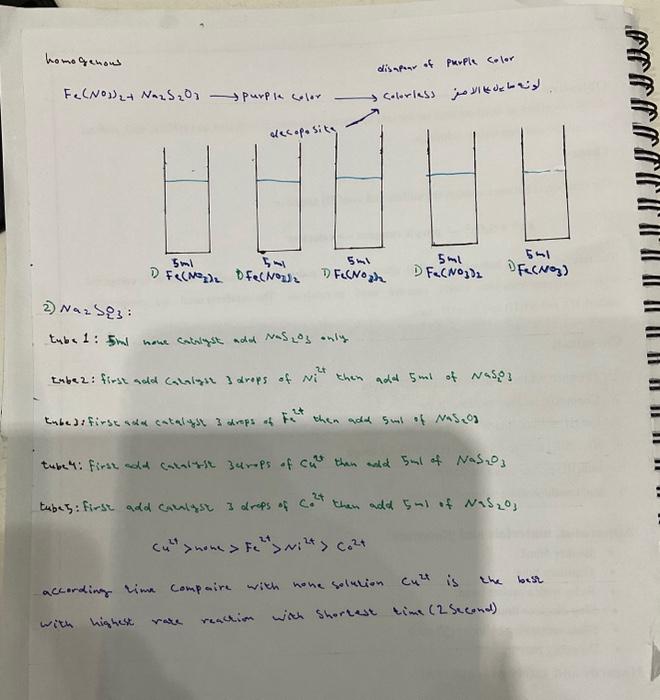 homogenous
disapear of purple color
Fe(NO3)2 + Na2S2O3 → purple color → colorless
decoposite
5ml 5ml 5ml 5ml 5ml
1) Fe(NO3)2 1) Fe(NO3)2 1) Fe(NO3)2 1) Fe(NO3)2 1) Fe(NO3)
2) Na2S2O3:
tube 1: 5ml none catalyst add NaS2O3 only
tube2: first add catalyst 3 drops of Ni2+ then add 5ml of NaS2O3
tube3: first add catalyst 3 drops of Fe2+ then add 5ml of NaS2O3
tube4: first add catalyst 3 drops of Cu2+ then add 5ml of NaS2O3
tube5: first add catalyst 3 drops of Co2+ then add 5ml of NaS2O3
Cu2+ > none > Fe2+ > Ni2+ > Co2+
according time compaire with none solution Cu2+ is the best
with highest rate reaction with shortest time (2 second)